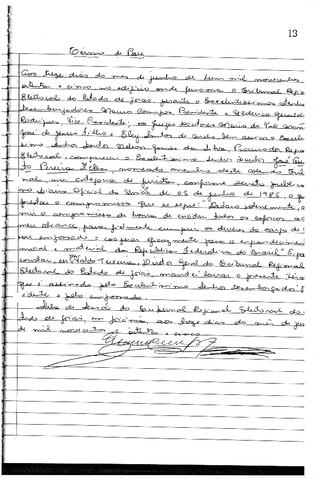 13
Termo de Posse
Aos treze dias do mês de junho de hum mil novecentos
oitenta e cinco no edifício onde funciona o Tribunal Regio
Eleitoral do Estado de Goiás, perante os Excelentíssimos Senho
Desembargadores Mauro Campos, Presidente e Geraldo
Rodrigues, Vice Presidente; os Juízes Doutores
José de Jesus Filho e
Senhor Doutor Gomes da Silva, Procurador Regio
Eleitoral, compareceu o Excelentíssimo Senhor Doutor José
Pereira nomeado membro deste colendo Tribu
nal, na categoria de jurista, conforme decreto publica
no Diário Oficial da União de 05 de junho de 1985, o qu
prestou o compromisso que se segue: Declaro solenemente, a
o compromisso de honra de envidar todos os esforços ao
meu alcance, para fielmente cumprir os deveres do cargo de
em empossado e cooperar eficazmente para o engrandecimen
moral e material da República Federativa do Brasil". E, pa
constar, eu, Diretor Geral do Tribunal Regional
Eleitoral do Estado de Goiás, mandei lavrar o presente têrm
que é assinado pelo Excelentíssimo Senhor Desembargador
idente e pelo empossado.
Sala de Sessões do Tribunal Regional Eleitoral do
tado de Goiás, em Goiânia, aos treze dias do mês de jun
de mil novecentos e oitenta e cinco.